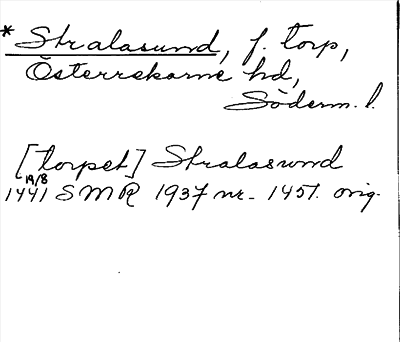 * Stralasund, f. torp,
Österrekarne hd,
Söderm. l.
[torpet] Stralasund
19/8
1441 SMR 1937 nr. 1451. orig.